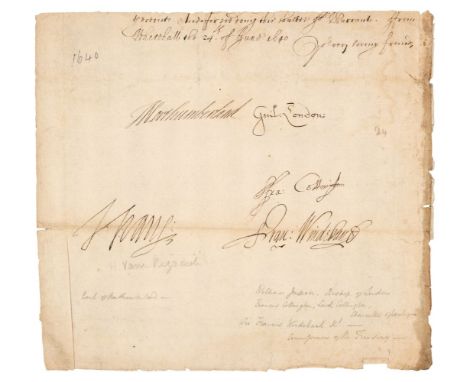 warrant. And for so doing this shalbe yor Warrant. From
Whitehall the 24th of June 1640
Yor very loving friends
1640
Northumberland Guil: London
24
Fra: Cottington
H Vane
Fran: Windebank
H Vane
Earl of Northumberland —
William Juxon, Bishop of London
Francis Cottington, Lord Cottington,
Chancellor of
Sir Francis Windebank Kt —
Commissioners of the Treasury —